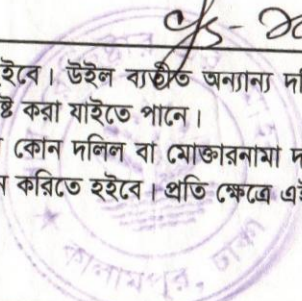 ইবে। উইল ব্যতীত অন্যান্য দ
ষ্ট করা যাইতে পানে।
কোন দলিল বা মোক্তারনামা দ
ন করিতে হইবে। প্রতি ক্ষেত্রে এই
কালামপুর, ঢাকা